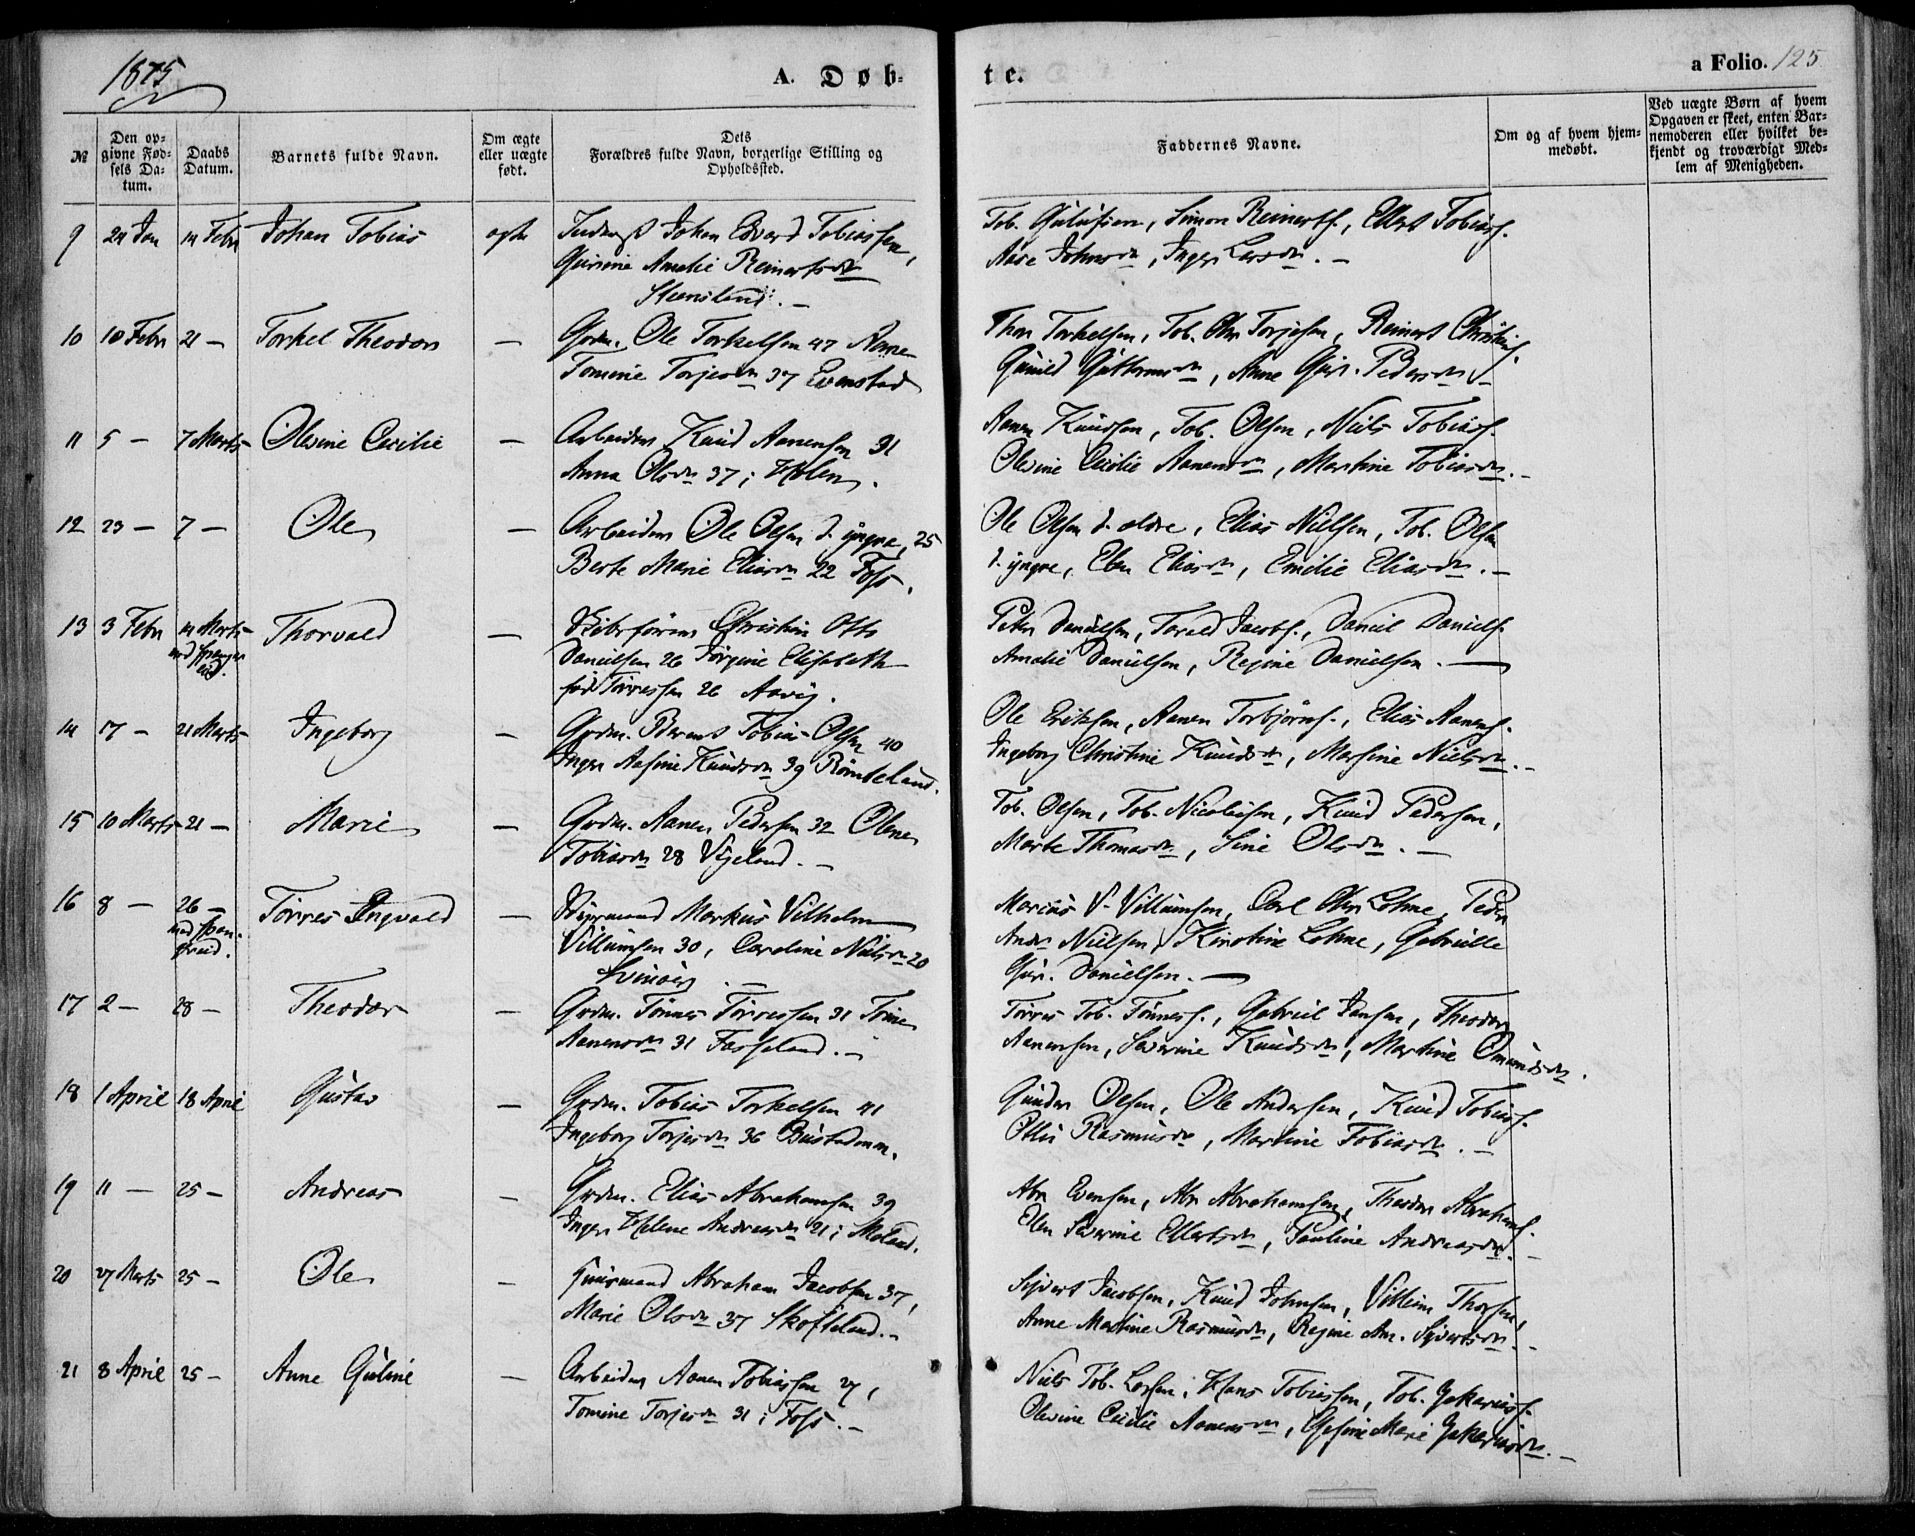 1875
A. Døb-
te.
a Folio. 125
№
Den op-
givne Fød-
sels Da-
tum.
Daabs
Datum.
Barnets fulde Navn.
Om ægte
eller uægte
født.
Dets
Forældres fulde Navn, borgerlige Stilling og
Opholdssted.
Faddernes Navne.
Om og af hvem hjem-
medøbt.
Ved uægte Børn af hvem
Opgaven er skeet, enten Bar-
nemoderen eller hvilket be-
kjendt og troværdigt Med-
lem af Menigheden.
9 24 Jan 14 Febr Johan Tobias ægte Johan Edvard Tobiassen,
Amalie Reinertsdtr
Steensland. —
Tob. Simon Reinerts., Ellert Tobias.
Aase Johnsdtr, Inger Larsdtr. —
10 10 Febr 21 — Torkel Theodor — Grdm. Ole Torkelsen 47
Tomine Torjesdtr 37 Evensted
Thor Torkelsen, Tob. Chr Torjesen, Reinert
Gunild Guttormsdtr, Anne Gur. Pedersdtr. —
11 5 — 7 Marts Olevine Cecilie — Arbeider Knud Aanensen 31
Anna Olsdtr 37 i Holen.
Aanen Knudsen, Tob. Olsen, Niels Tobias.
Olevine Cecilie Aanensdtr, Martine Tobiasdtr. —
12 23 — 7 — Ole — Arbeider Ole Olsen d. yngre, 25
Berte Marie Eliasdtr 22 Foss.
Ole Olsen d. ældre, Elias Nielsen, Tob. Olsen
d. yngre, Elen Eliasdtr, Emilie Eliasdtr. —
13 3 Febr 14 Marts Thorvald — Skibsfører Christian Otto
Danielsen 26 Jørgine Elisabeth
født Tørressen 26 Aavig.
Peter Danielsen, Torald Jacobs., Daniel Daniels.
Amalie Danielsen, Regine Danielsen. —
14 17 — 21 Marts Ingeborg — Grdm. Berent Tobias Olsen 40
Inger Aasine Knudsdtr 39 Römteland.
Ole Eriksen, Aanen Torbjörns., Elias Aanens.
Ingeborg Christine Knudsdtr, Marsine Nielsdtr. —
15 10 Marts 21 — Marie — Grdm. Aanen Pedersen 32 Olene
Tobiasdtr 28 Vigeland. —
Tob. Olsen, Tob. Nicolaisen, Knud Pedersen,
Marte Thomasdtr, Sine Olsdtr. —
16 8 — 26 — Tørres Ingvald — Markus Vilhelm
Villumsen 30, Caroline Nielsdtr 20
Svinøer. —
Marcus V. Villumsen, Carl Chr Lohne, Peder
Andr Nielsen, Kirstine Lohne, Gabrielle
Gur. Danielsen. —
17 2 — 28 — Theodor — Grdm. Tønnes Tørressen 31 Tomine
Aanensdtr 31 Fasseland. —
Tørres Tob. Tønnes., Gabriel Jansen, Theodor
Aanensen, Severine Knudsdtr, Martine Omundsdtr.
18 1 April 18 April Gustav — Grdm. Tobias Torkelsen 41
Ingeborg Torjesdtr 36 Bustadmoen.
Gunder Olsen, Ole Andersen, Knud Tobias.
Rasmusdtr, Martine Tobiasdtr. —
19 11 — 25 — Andreas — Grdm. Elias Abrahamsen 39
Inger Helene Andreasdtr 21 i Moland.
Abr Evensen, Abr Abrahamsen, Theodor Abrahams.
Elen Severine Ellertsdtr, Pauline Andreasdtr. —
20 27 Marts 25 — Ole — Huusmand Abraham Jacobsen 37,
Marie Olsdtr 37 Skofteland. —
Sivert Jacobsen, Knud Johnsen, Vilhelm Thorsen,
Anne Martine Rasmusdtr, Regine Am. Sivertsdtr. —
21 8 April 25 — Anne Guline — Arbeider Aanen Tobiassen 27,
Tomine Torjesdtr 31 i Foss. —
Niels Tob. Larsen, Hans Tobiassen, Tob. Zakarias.
Olevine Cecilie Aanensdtr, Gesine Marie Zakariasdtr. —